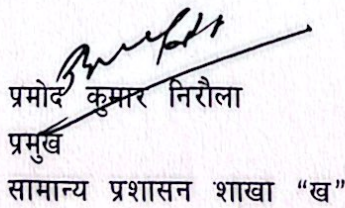 प्रमोद कुमार निरौला
प्रमुख
सामान्य प्रशासन शाखा “ख”